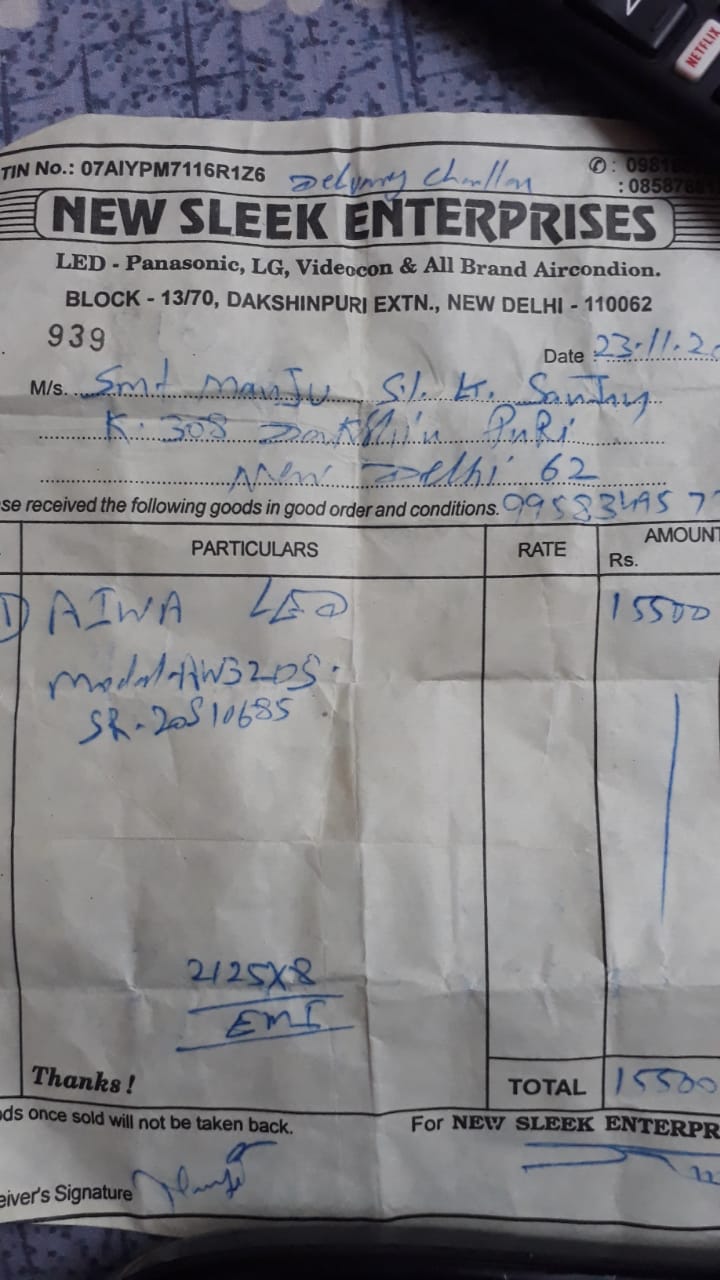 NETFLIX
TIN No.: 07AIYPM7116R1Z6
Delivery Challan
✆ : 0981
: 08587
NEW SLEEK ENTERPRISES
LED - Panasonic, LG, Videocon & All Brand Aircondion.
BLOCK - 13/70, DAKSHINPURI EXTN., NEW DELHI - 110062
939
Date 23.11.20
M/s. Smt Manju S.L. K. Sanjay
K. 308 Dakshin Puri
New Delhi 62
se received the following goods in good order and conditions. 99583495 7
PARTICULARS RATE AMOUNT
Rs.
1) AIWA LED 15500
Model-AW320S.
SR-20S10685
2125X8
EMI
Thanks! TOTAL 15500
ds once sold will not be taken back. For NEW SLEEK ENTERPR
eiver's Signature